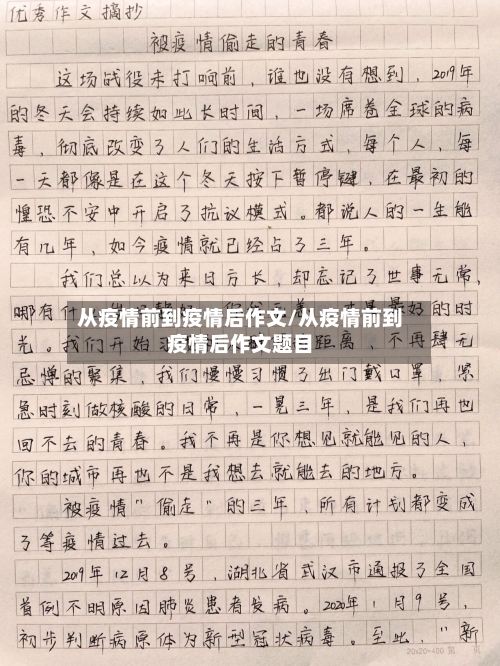 优秀作文摘抄
被疫情偷走的青春
这场战役未打响前，谁也没有想到，2019年
的冬天会持续如此长时间，一场席卷全球的病
毒，彻底改变了人们的生活方式，每个人，每
一天都像是在这个冬天按下暂停键，在最初的
惶恐不安中开启了抗议模式。都说人的一生能
有几年，如今疫情就已经占了三年。
我们总以为来日方长，却忘记了世事无常，
哪有什 最好的时
从疫情前到疫情后作文/从疫情前到
疫情后作文题目
光。我们开始 距离，不再肆无
忌惮的聚集，我们慢慢习惯了出门戴口罩，紧
急时刻做核酸的日常，一晃三年，是我们再也
回不去的青春。我不再是你想见就能见的人，
你的城市再也不是我想去就能去的地方。
被疫情"偷走"的三年，所有计划都变成
了等疫情过去。
2019年12月8号，湖北省武汉市通报了全国
首例不明原因肺炎患者发病。2020年1月9号，
初步判断病原体为新型冠状病毒。至此，"新
20x20=400 第 页